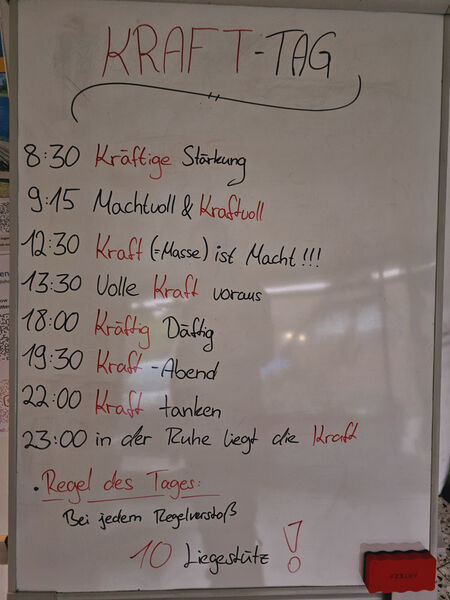 KRAFT-TAG
8:30 Kräftige Stärkung
9:15 Machtvoll & Kraftvoll
12:30 Kraft (=Masse) ist Macht!!!
13:30 Volle Kraft voraus
18:00 Kräftig Däftig
19:30 Kraft-Abend
22:00 Kraft tanken
23:00 in der Ruhe liegt die Kraft
. Regel des Tages:
Bei jedem Regelverstoß
10 Liegestütz !